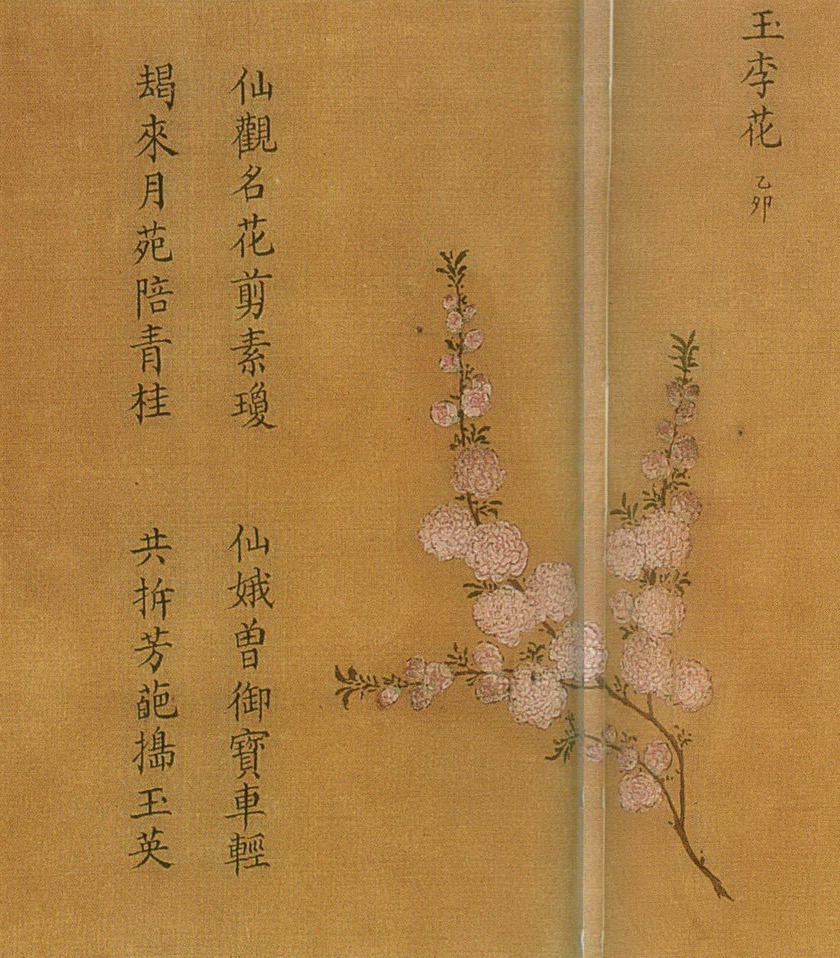 玉李花 乙卯
仙觀名花剪素瓊 仙娥曾御寶車輕
朅來月苑陪青桂 共芳葩搗玉英